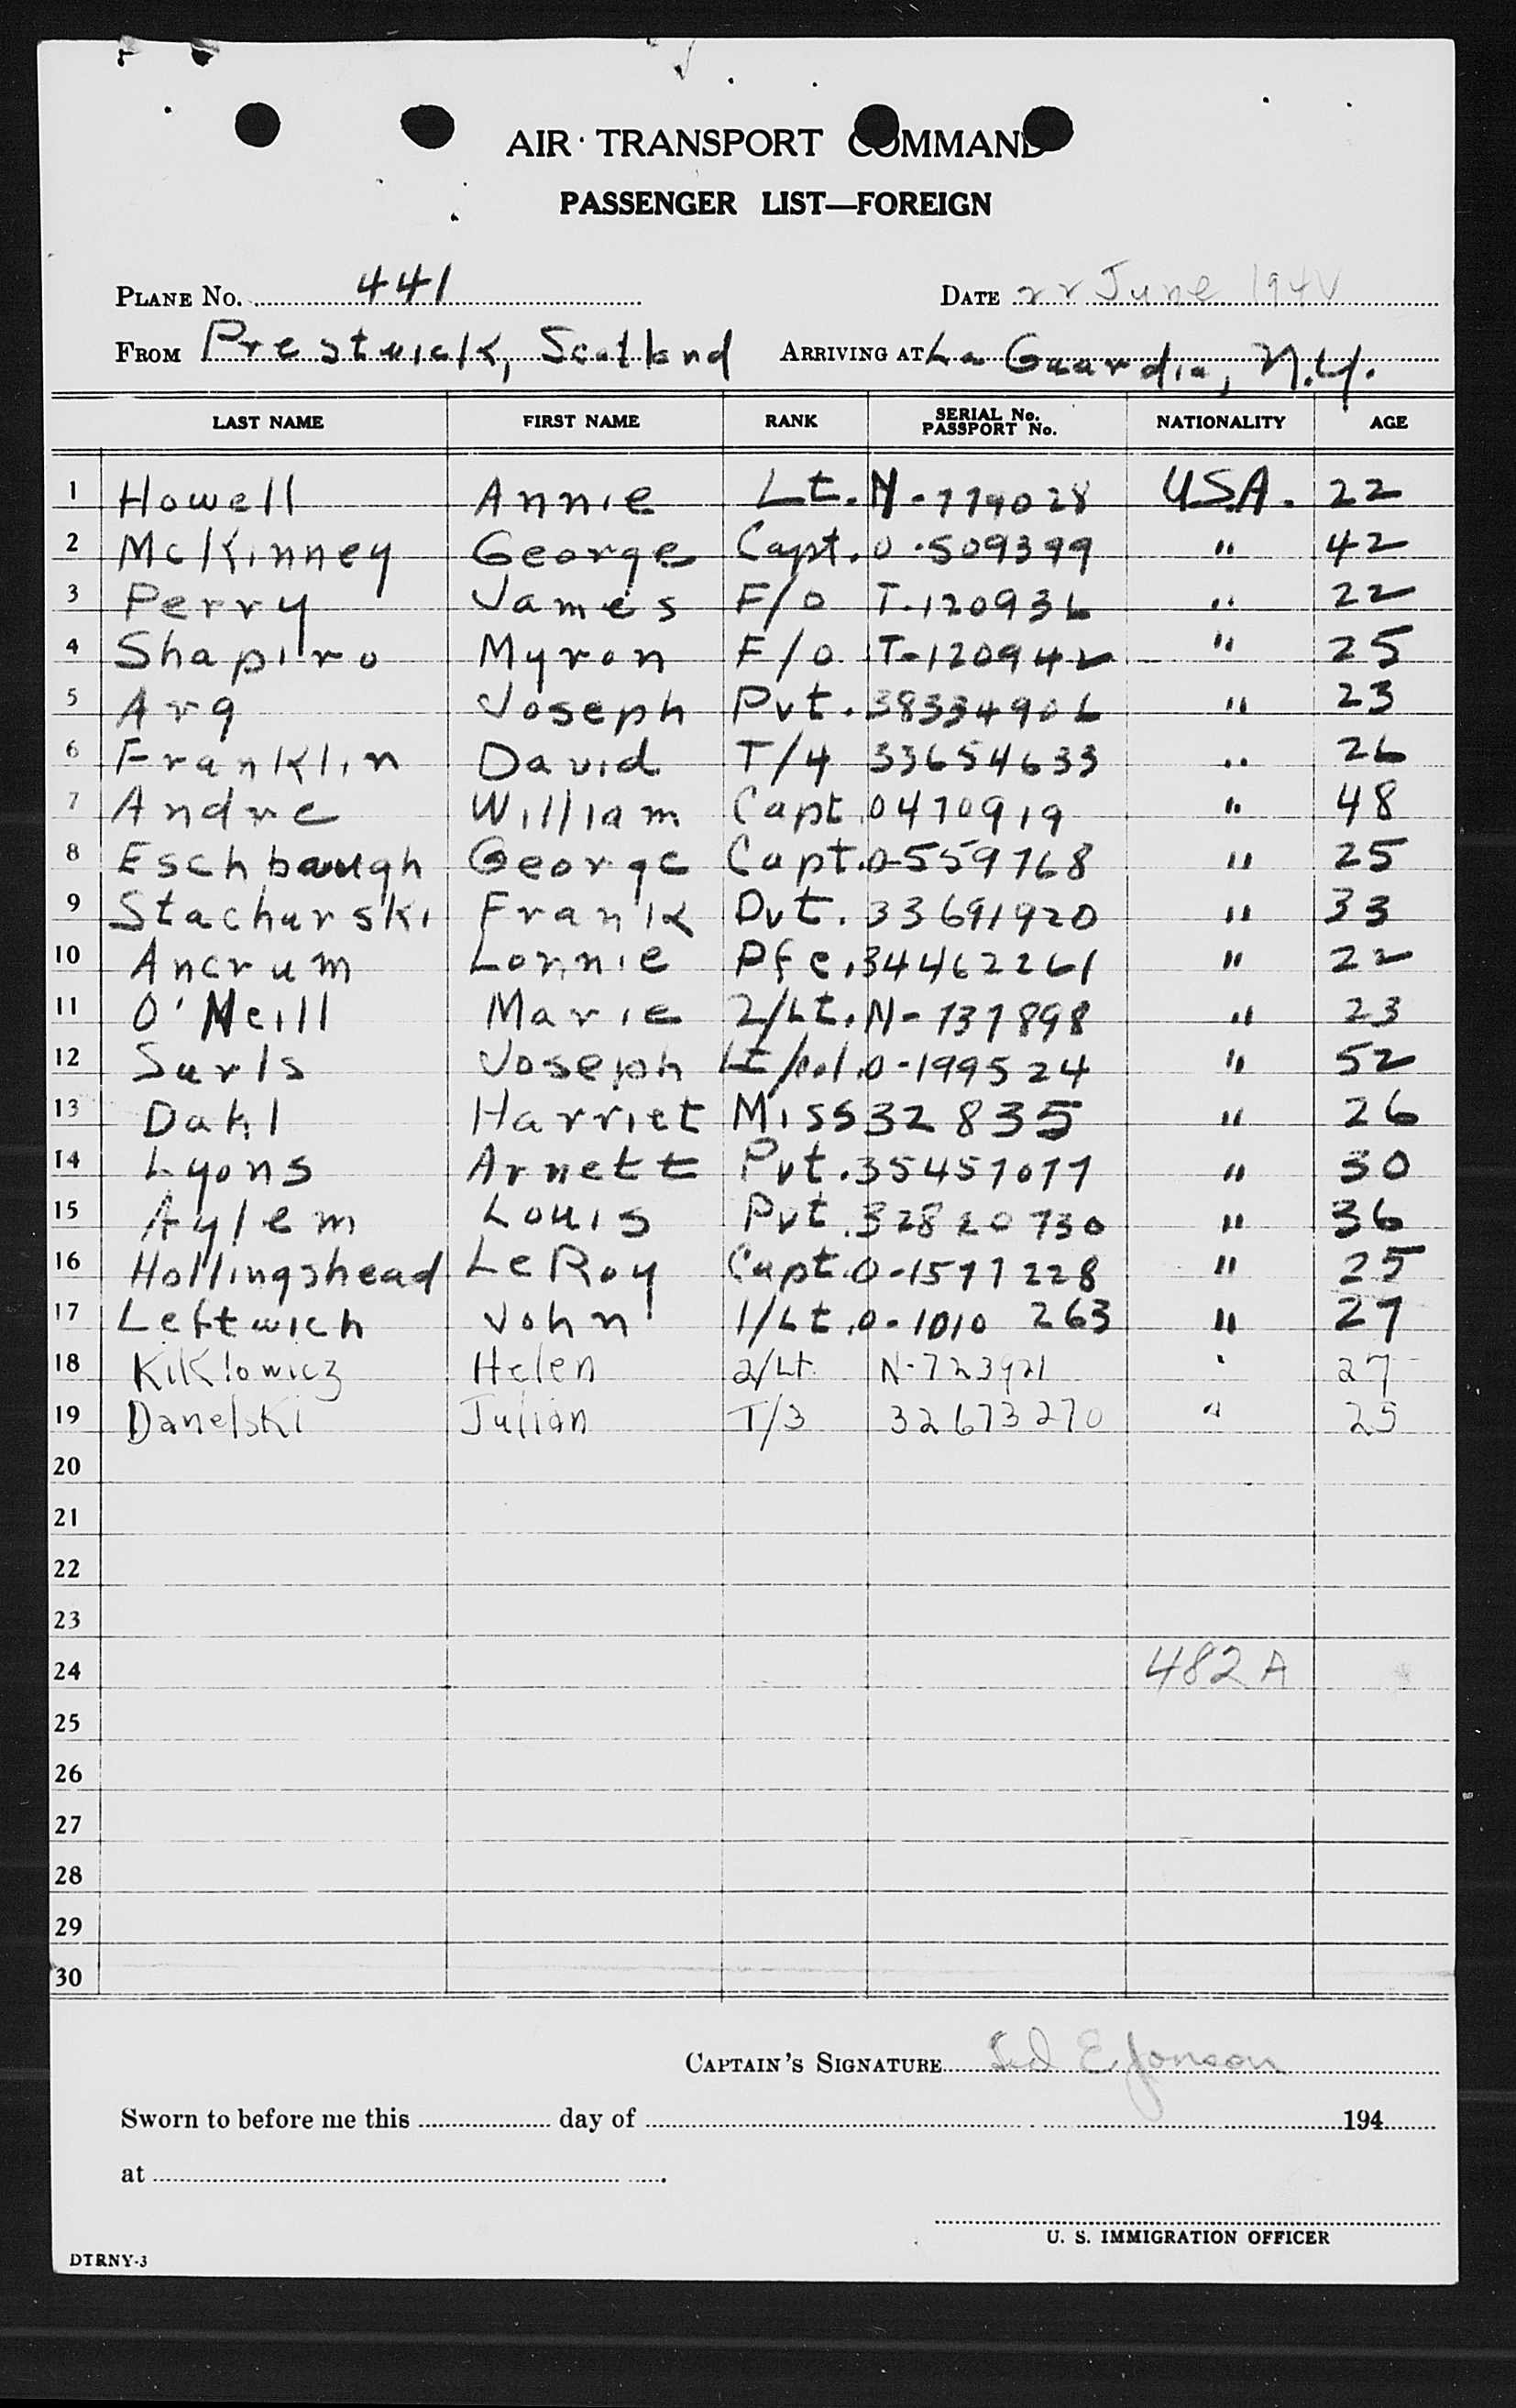 AIR TRANSPORT COMMAND
PASSENGER LIST—FOREIGN
PLANE No. 441 DATE 22 June 194
FROM Prestwick, Scotland ARRIVING AT La Guardia, N.Y.
LAST NAME FIRST NAME RANK SERIAL No. PASSPORT No. NATIONALITY AGE
1 Howell Annie Lt. N-779028 USA. 22
2 McKinney George Capt. 0-509399 " 42
3 Perry James F/O T-120936 " 22
4 Shapiro Myron F/O T-120942 " 25
5 Arg Joseph Pvt. 38334906 " 23
6 Franklin David T/4 33654633 " 26
7 Andre William Capt. 0470919 " 48
8 Eschbaugh George Capt. 0-559768 " 25
9 Stachurski Frank Pvt. 33691920 " 33
10 Ancrum Lonnie Pfc. 34462261 " 22
11 O'Neill Marie 2/Lt. N-737898 " 23
12 Surls Joseph Lt/Col. 0-199524 " 52
13 Dahl Harriet Miss 32835 " 26
14 Lyons Arnett Pvt. 35457077 " 30
15 Aylem Louis Pvt. 32820730 " 36
16 Hollingshead LeRoy Capt. 0-1577228 " 25
17 Leftwich John 1/Lt. 0-1010 263 " 27
18 Kiklowicz Helen 2/Lt. N-723921 " 27
19 Danelski Julian T/3 32673270 " 25
20
21
22
23
24 482 A
25
26
27
28
29
30
CAPTAIN'S SIGNATURE Ted E. Jonson
Sworn to before me this day of 194
at
U. S. IMMIGRATION OFFICER
DTRNY-3